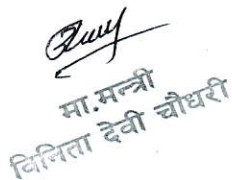 मा.मन्त्री
विनिता देवी चौधरी